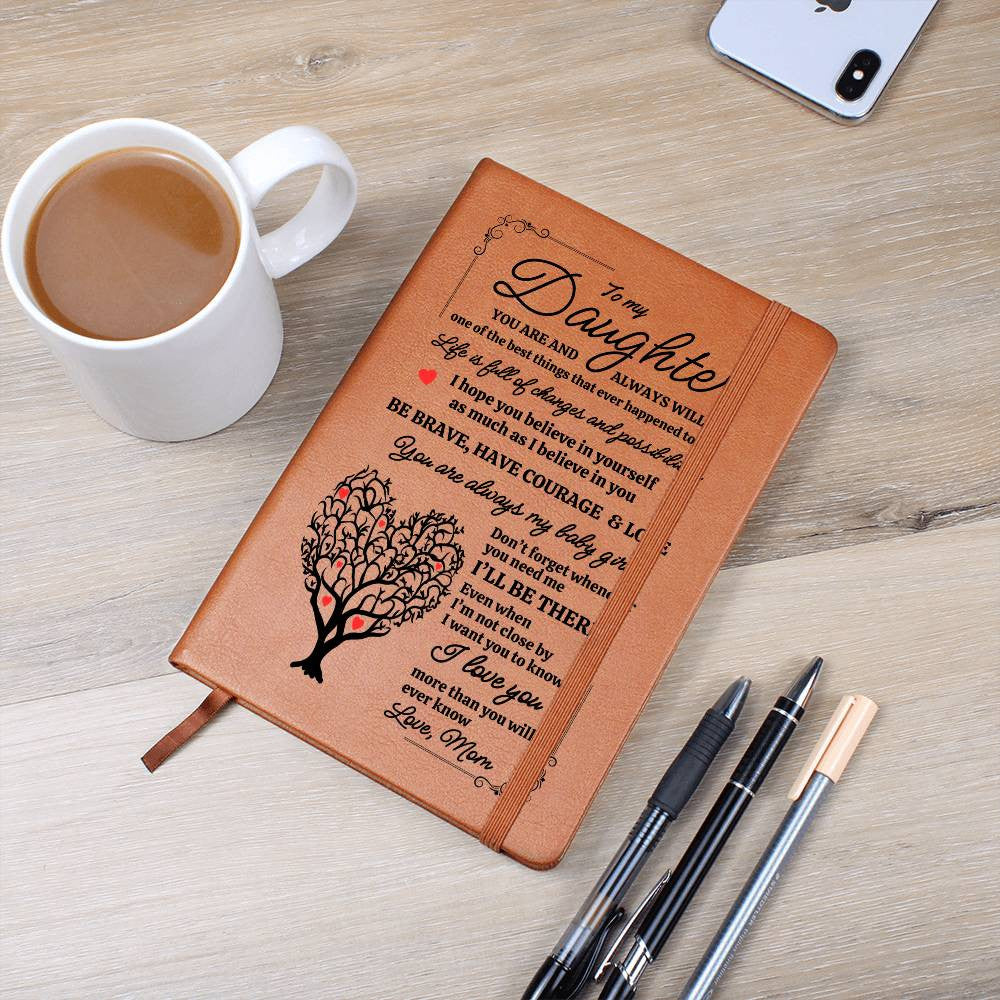 To my
Daughte
YOU ARE AND ALWAYS WILL
one of the best things that ever happened to
Life is full of changes and possibili
I hope you believe in yourself
as much as I believe in you
BE BRAVE, HAVE COURAGE & LO E
You are always my baby gir
Don't forget when
you need me
I'LL BE THER
Even when
I'm not close by
I want you to know
I love you
more than you will
ever know
Love, Mom